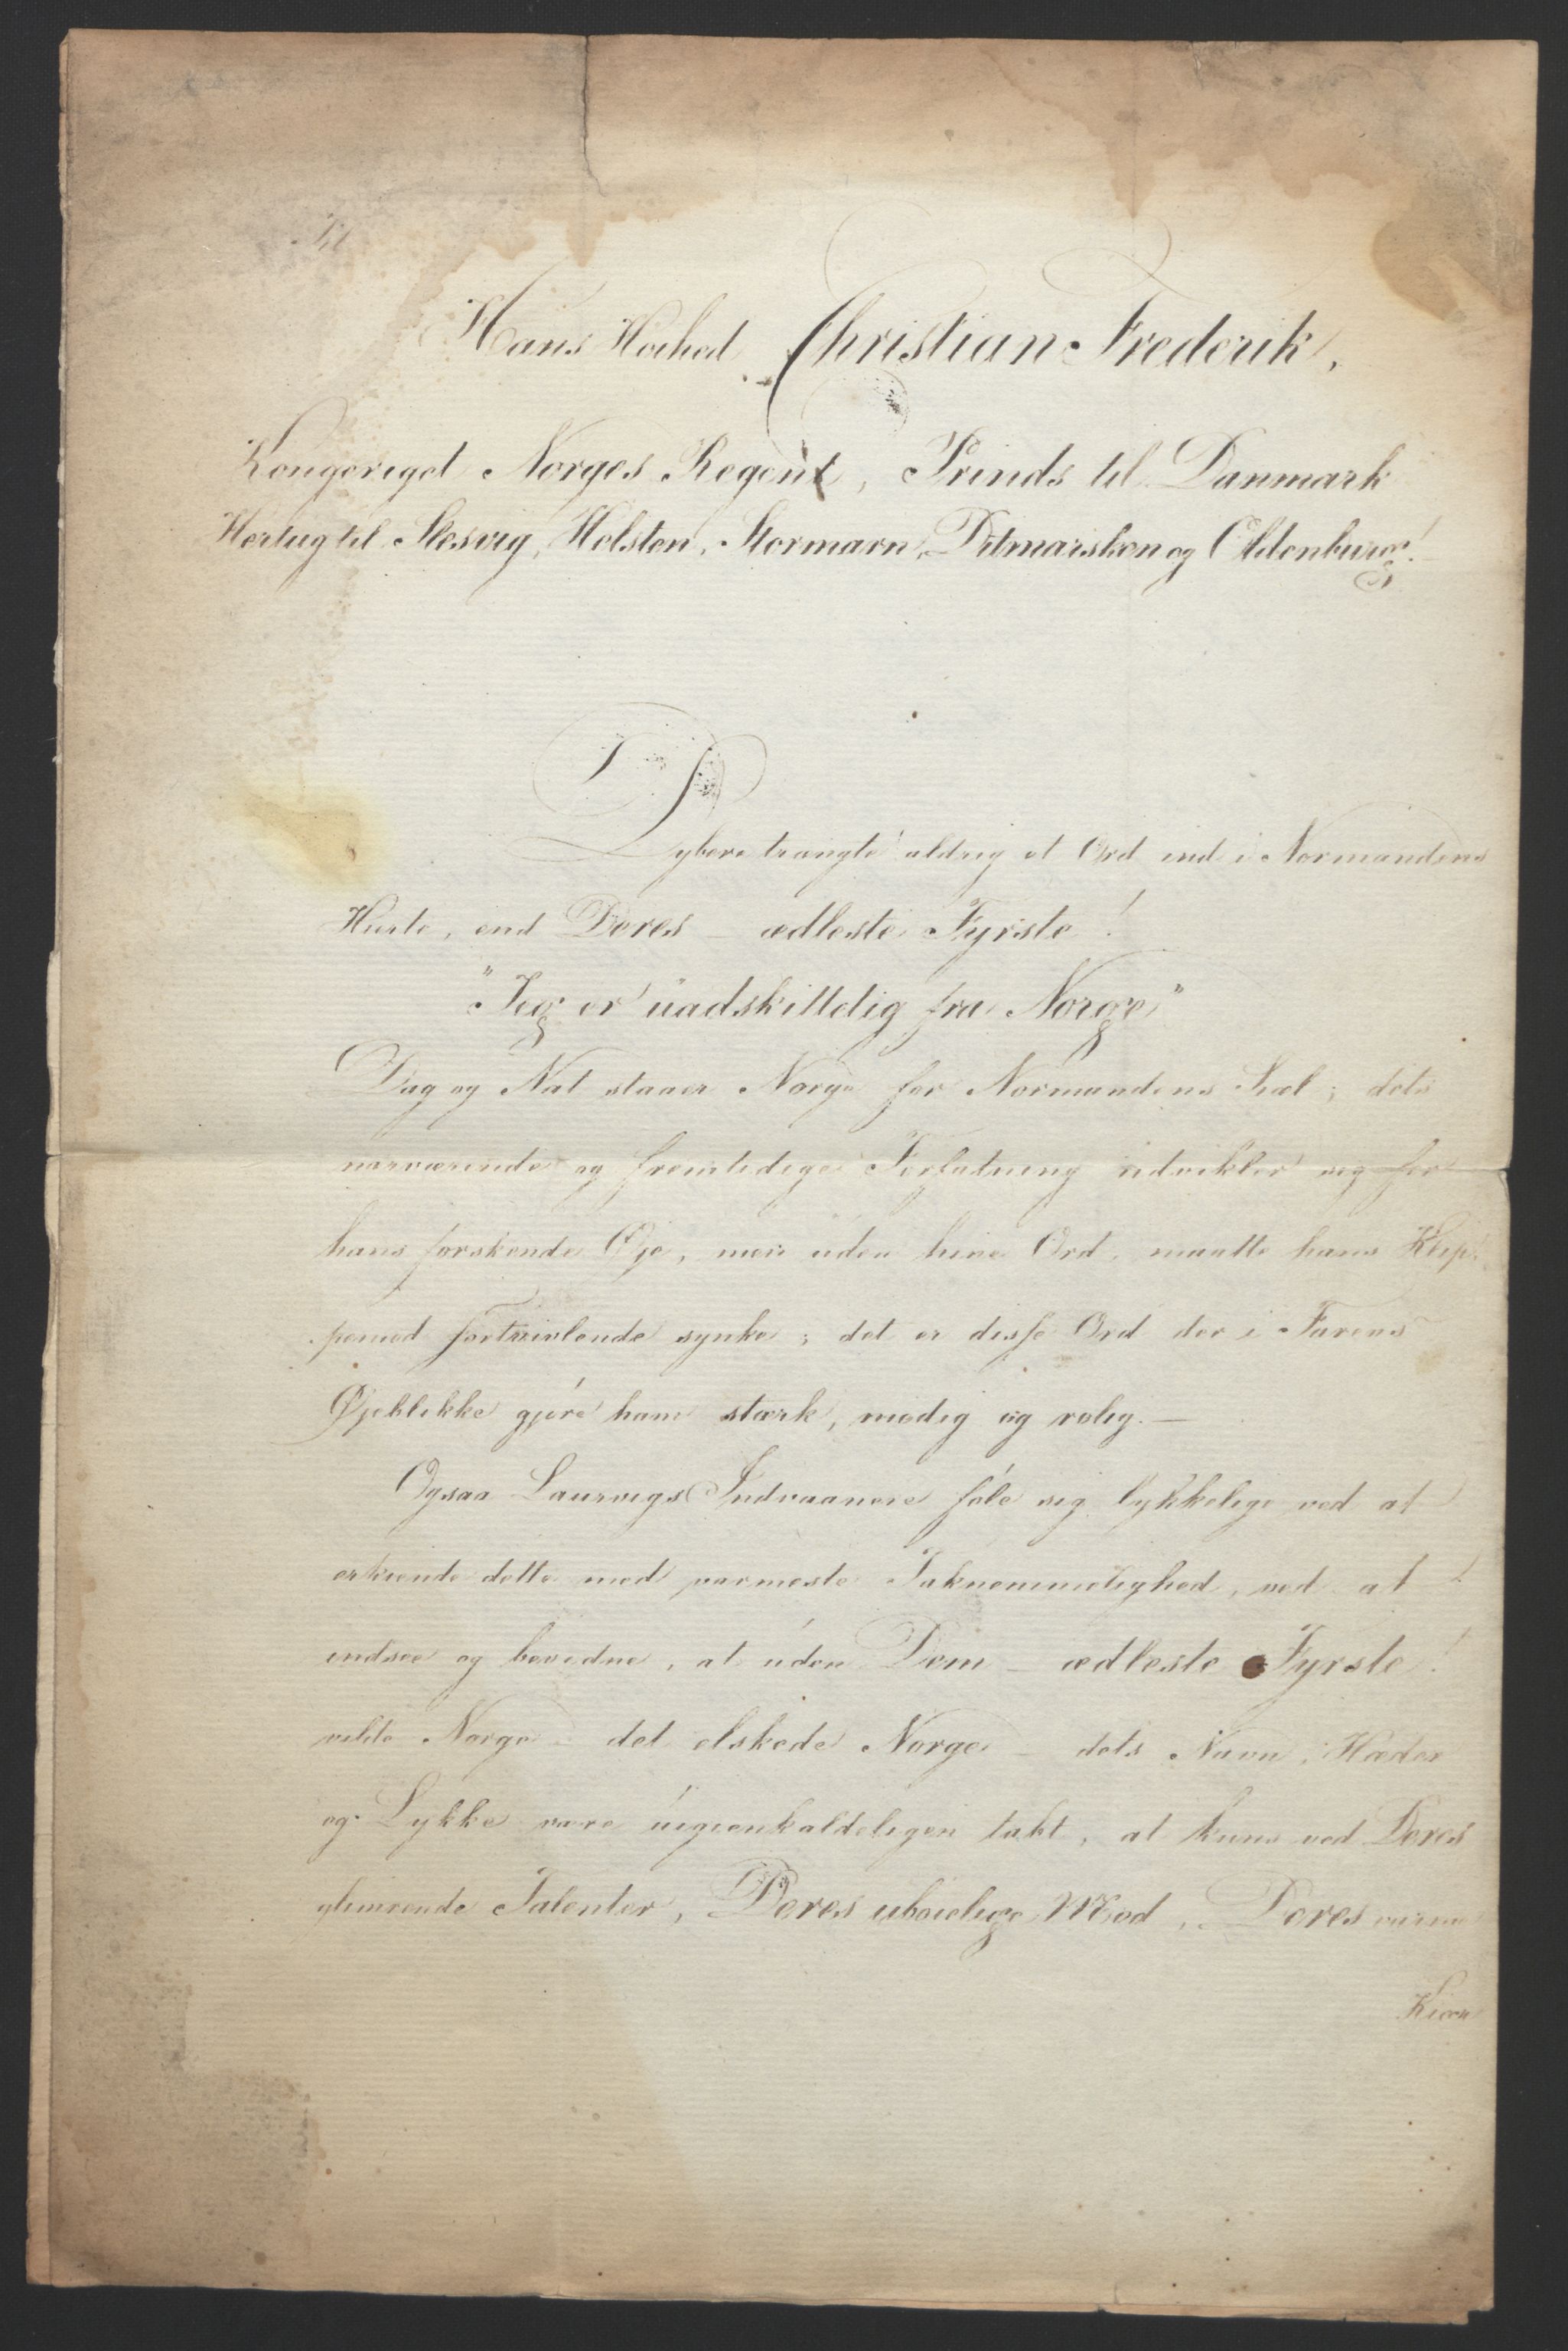 Til
Hans Høihed Christian Frederik,
Kongeriget Norges Regent, Prinds til Danmark
Hertug til Slesvig, Holsten, Stormarn, Ditmarsken og Oldenburg!
Dybere trængte aldrig et Ord ind i Normandens
Hierte, end Deres – ædleste Fyrste!
"Jeg er uadskillelig fra Norge"
Dag og Nat staaer Norge for Normandens Siæl; dets
nærværende og fremtidige Forfatning udvikler sig for
hans forskende Øje, men uden hine Ord, maatte hans Klip-
pemod fortvivlende synke; det er disse Ord der i Farens
Øjeblikke gjøre ham stærk, modig og rolig. –
Ogsaa Laurvigs Indvaanere føle sig lykkelige ved at
erkiende dette med varmeste Taknemmelighed, ved at
indsee og bevidne, at uden Dem – ædleste Fyrste!
vilde Norge – det elskede Norge – dets Navn, Hæder
og Lykke være uigienkaldeligen tabt, at kuns ved Deres
glimrende Talenter, Deres ubøielige Mod, Deres varme
Kiær